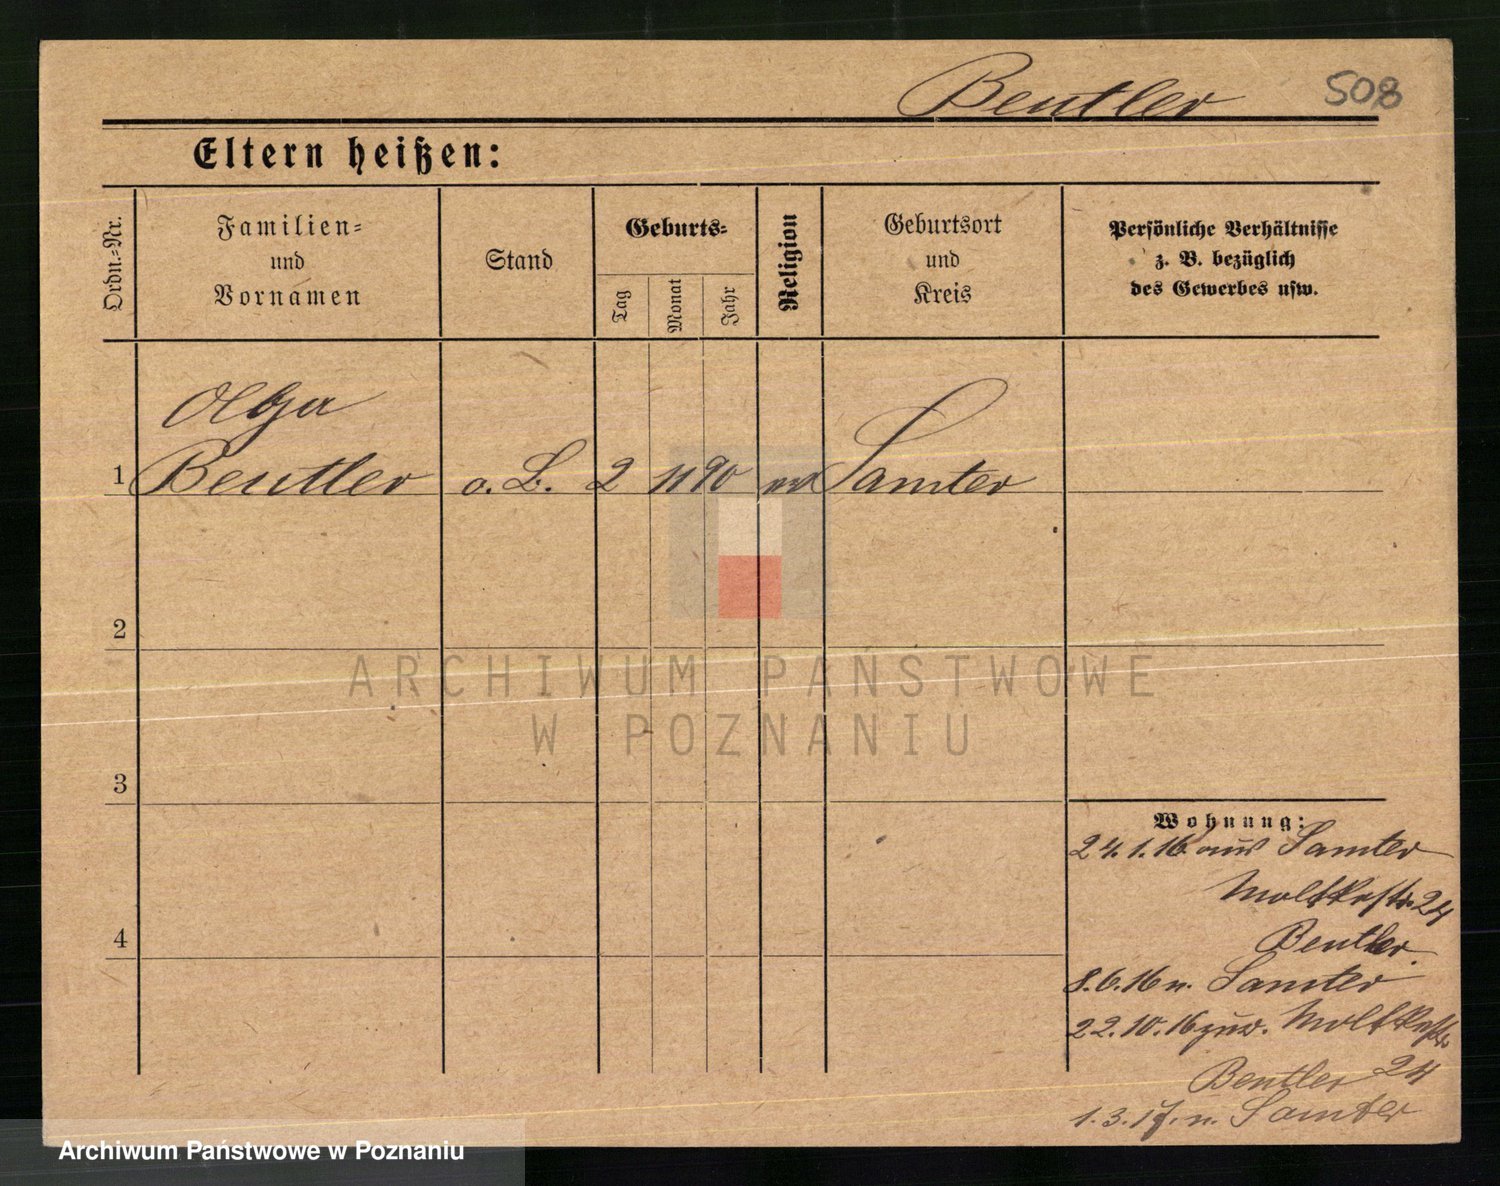 Beutler 508
Eltern heißen:
Ordn.-Nr.
Familien-
und
Vornamen
Stand
Geburts-
Tag
Monat
Jahr
Religion
Geburtsort
und
Kreis
Persönliche Verhältnisse
z. B. bezüglich
des Gewerbes usw.
Olga
1 Beutler o. B. 2 11 90 ev Samter
2
3
4
Wohnung:
24.1.16 aus Samter
Moltkestr. 24
Beutler.
8.6.16 n. Samter
22.10.16 zur. Moltkestr
Beutler 24
1.3.17. n. Samter
ARCHIWUM PAŃSTWOWE
W POZNANIU
Archiwum Państwowe w Poznaniu